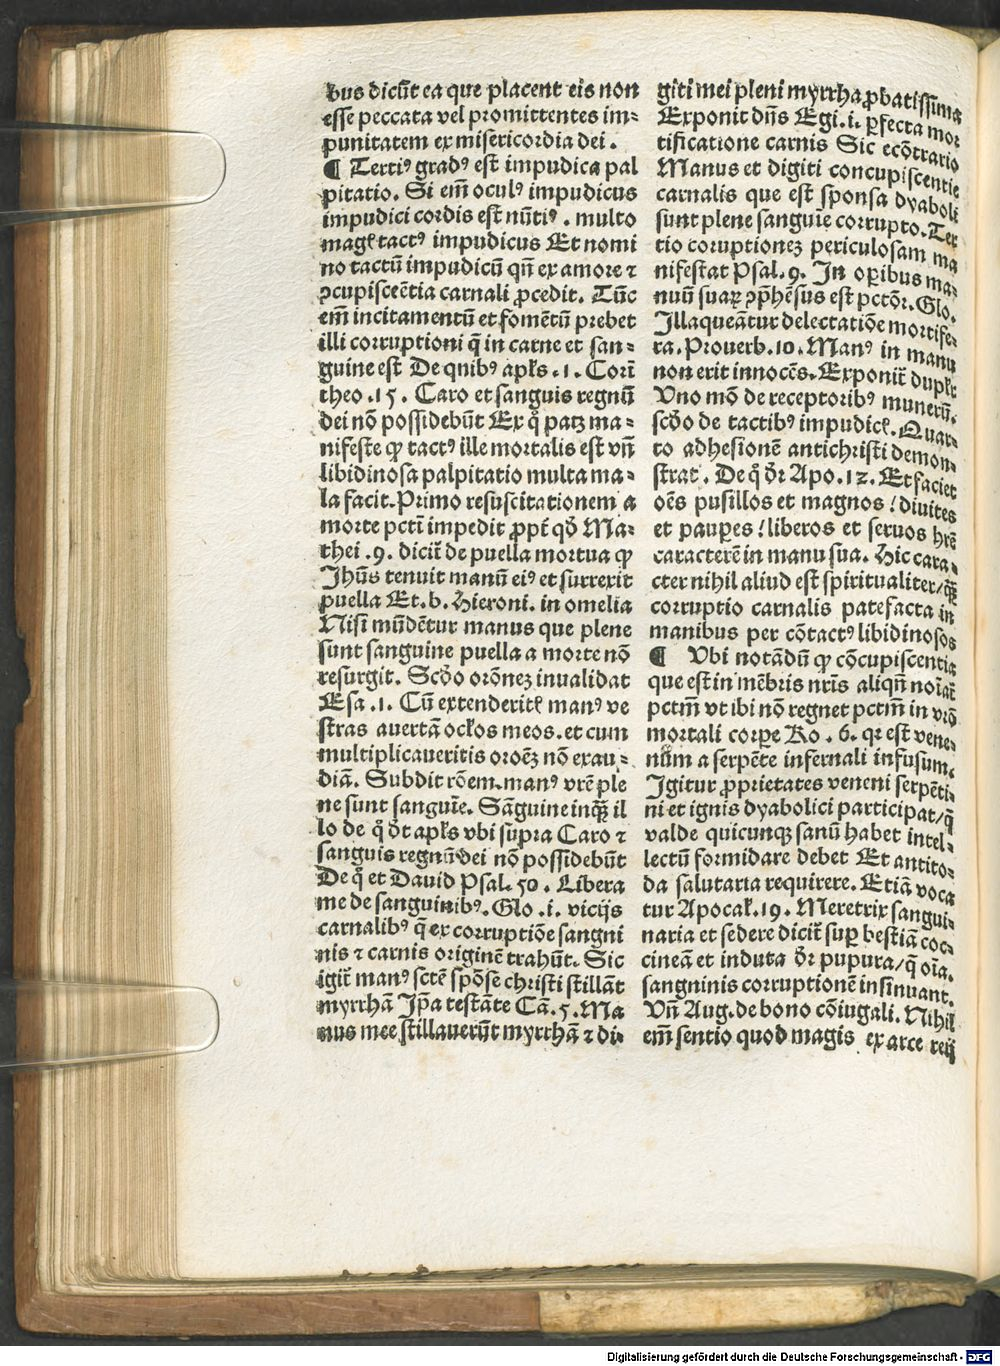 bus dicūt ea que placent eis non
esse peccata vel promittentes im⸗
punitatem ex misericordia dei .
¶ Tertiꝰ gradꝰ est impudica pal
pitatio. Si em̄ oculꝰ impudicus
impudici cordis est nūtiꝰ . multo
mage tactꝰ impudicus Et nomi
no tactū impudicū qn̄ ex amore ⁊
ꝯcupiscētia carnali ꝓcedit. Tūc
em̄ incitamentū et fomētū prebet
illi corruptioni q̄ in carne et san⸗
guine est De quibꝰ apłs .1. Corī
theo .15 . Caro et sanguis regnū
dei nō possidebūt Ex qͦ patꝫ ma⸗
nifeste ꝙ tactꝰ ille mortalis est vn̄
libidinosa palpitatio multa ma⸗
la facit. Primo resuscitationem a
morte pctī impedit ꝓpt̄ qđ Ma⸗
thei .9. dicit̄ de puella mortua ꝙ
Jhūs tenuit manū eiꝰ et surrexit
puella Et .b. Hieroni. in omelia
Nisi mūdētur manus que plene
sunt sanguine puella a morte nō
resurgit. Scđo orōnez invalidat
Esa .1. Cū extenderitꝭ manꝰ ve
stras avertā ocłos meos. et cum
multiplicaveritis oroēꝫ nō exau⸗
diā. Subdit rōem. manꝰ vrē ple
ne sunt sanguīe. Sāguine inquā il
lo de qͦ dt̄ apłs vbi supra Caro ⁊
sanguis regnū dei nō possidebūt
De qͦ et David Psal. 50 . Libera
me de sanguinibꝰ. Glo .i. vicijs
carnalibꝰ q̄ ex corruptiōe sangui
nis ⁊ carnis originē trahūt. Sic
igit̄ manꝰ sctē spōse christi stillāt
myrrhā Jp̄a testāte Cā. 5. Ma
nus mee stillaverūt myrrhā ⁊ di⸗
giti mei pleni myrrha ꝓbatissima
Exponit dn̄s Egi. i. ꝑfecta mor
tificatione carnis Sic ecōtrario
Manus et digiti concupiscentie
carnalis que est sponsa dyaboli
sunt plene sanguīe corrupto. Ter
tio corruptionez periculosam ma
nifestat Psal. 9. In oꝑibus ma⸗
nuū suaꝝ ꝯp̄hēsus est pctōr. Glo.
Illaqueātur delectatiōe mortife⸗
ra. Proverb .10. Manꝰ in manu
non erit innocēs. Exponit̄ duplr̄
Uno mō de receptoribꝰ munerū.
scđo de tactibꝰ impudicꝭ. Quar⸗
to adhesionē antichristi demon⸗
strat . De qͦ dr̄ Apo .12. Et faciet
oēs pusillos et magnos / divites
et pauꝑes / liberos et servos hr̄e
caracterē in manu sua. Hic cara⸗
cter nihil aliud est spiritualiter / q̄ꝫ
corruptio carnalis patefacta in
manibus per cōtactꝰ libidinosos
¶ Ubi notādū ꝙ cōcupiscentia
que est in mēbris nr̄is aliqn̄ noīat̄
pctm̄ vt ibi nō regnet pctm̄ in vrō
mortali corꝑe Ro . 6. qr est vene⸗
nūm a serpēte infernali infusum.
Igitur ꝓprietates veneni serpēti⸗
ni et ignis dyabolici participat / q̄
valde quicunqꝫ sanū habet intel⸗
lectū formidare debet Et antito⸗
da salutaria requirere. Etiā voca
tur Apocał. 19. Meretrix sangui⸗
naria et sedere dicit̄ suꝑ bestiā coc⸗
cineā et induta dr̄ pupura / q̄ oīa
sanguinis corruptionē insinuant.
Vn̄ Aug. de bono cōiugali. Nihil
em̄ sentio quod magis ex arce reij
Digitalisierung gefördert durch die Deutsche Forschungsgemeinschaft - DFG